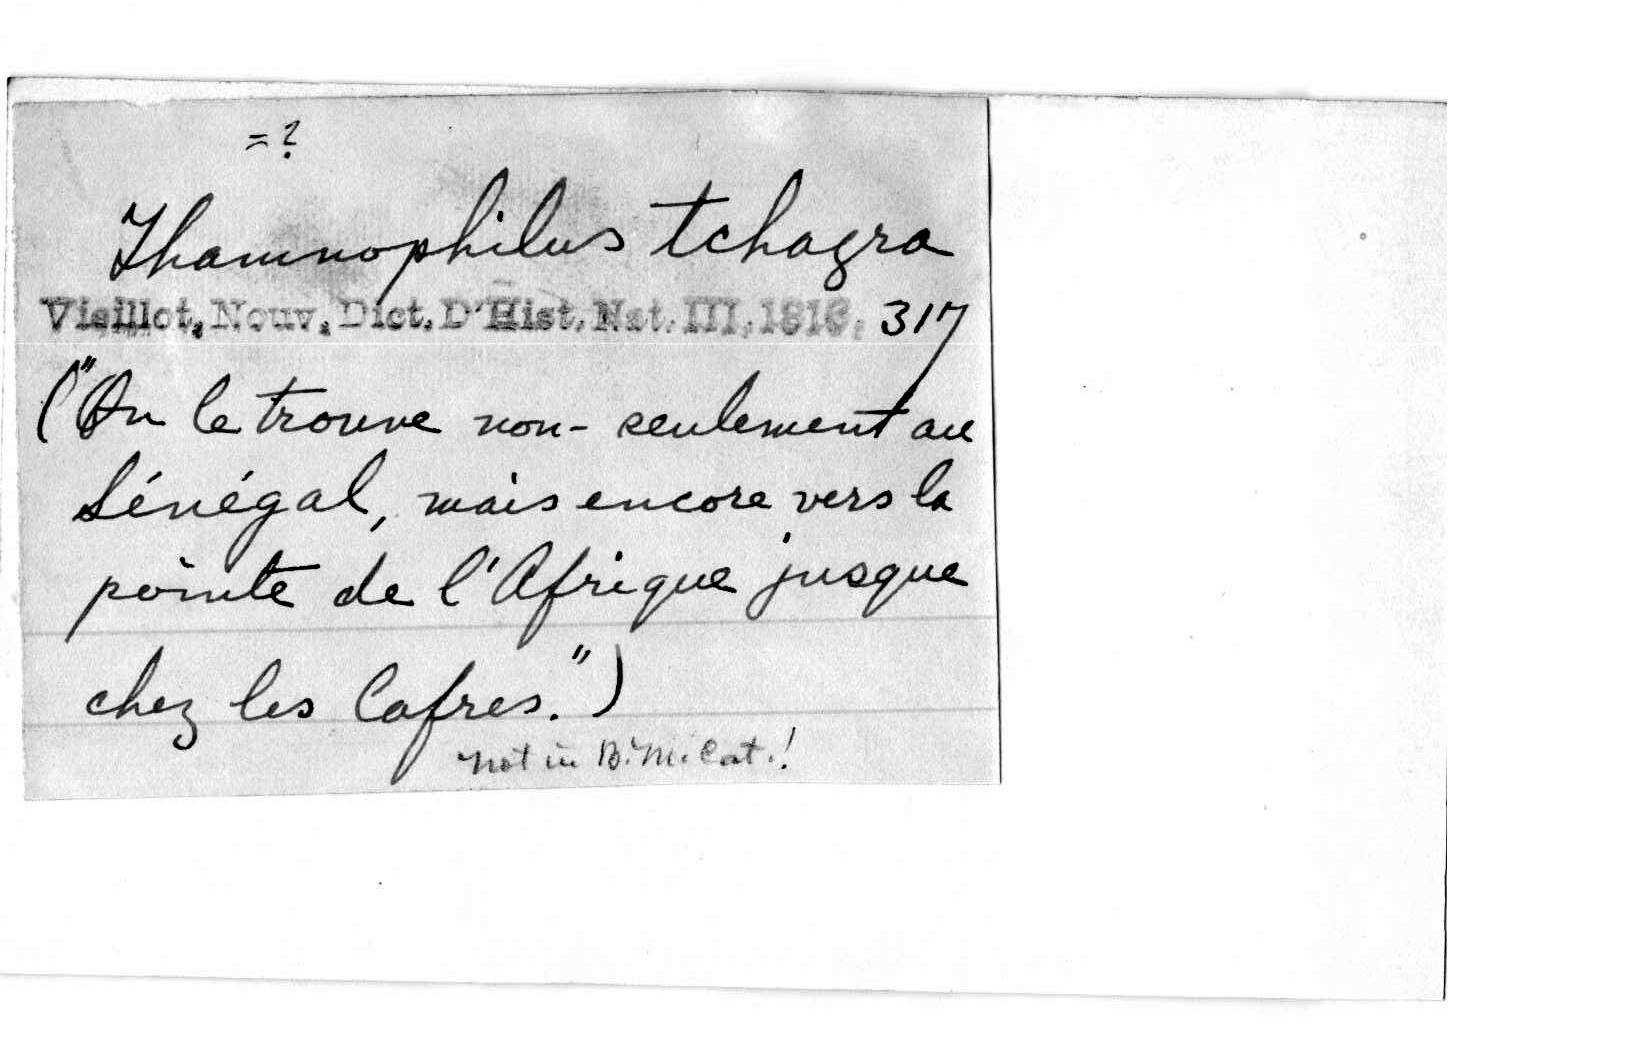 =?
Thamnophilus tchagra
Vieillot, Nouv. Dict. D'Hist. Nat. III, 1816, 317
("On le trouve non-seulement au
Sénégal, mais encore vers la
pointe de l'Afrique jusque
chez les Cafres.")
not in B.M. Cat.!